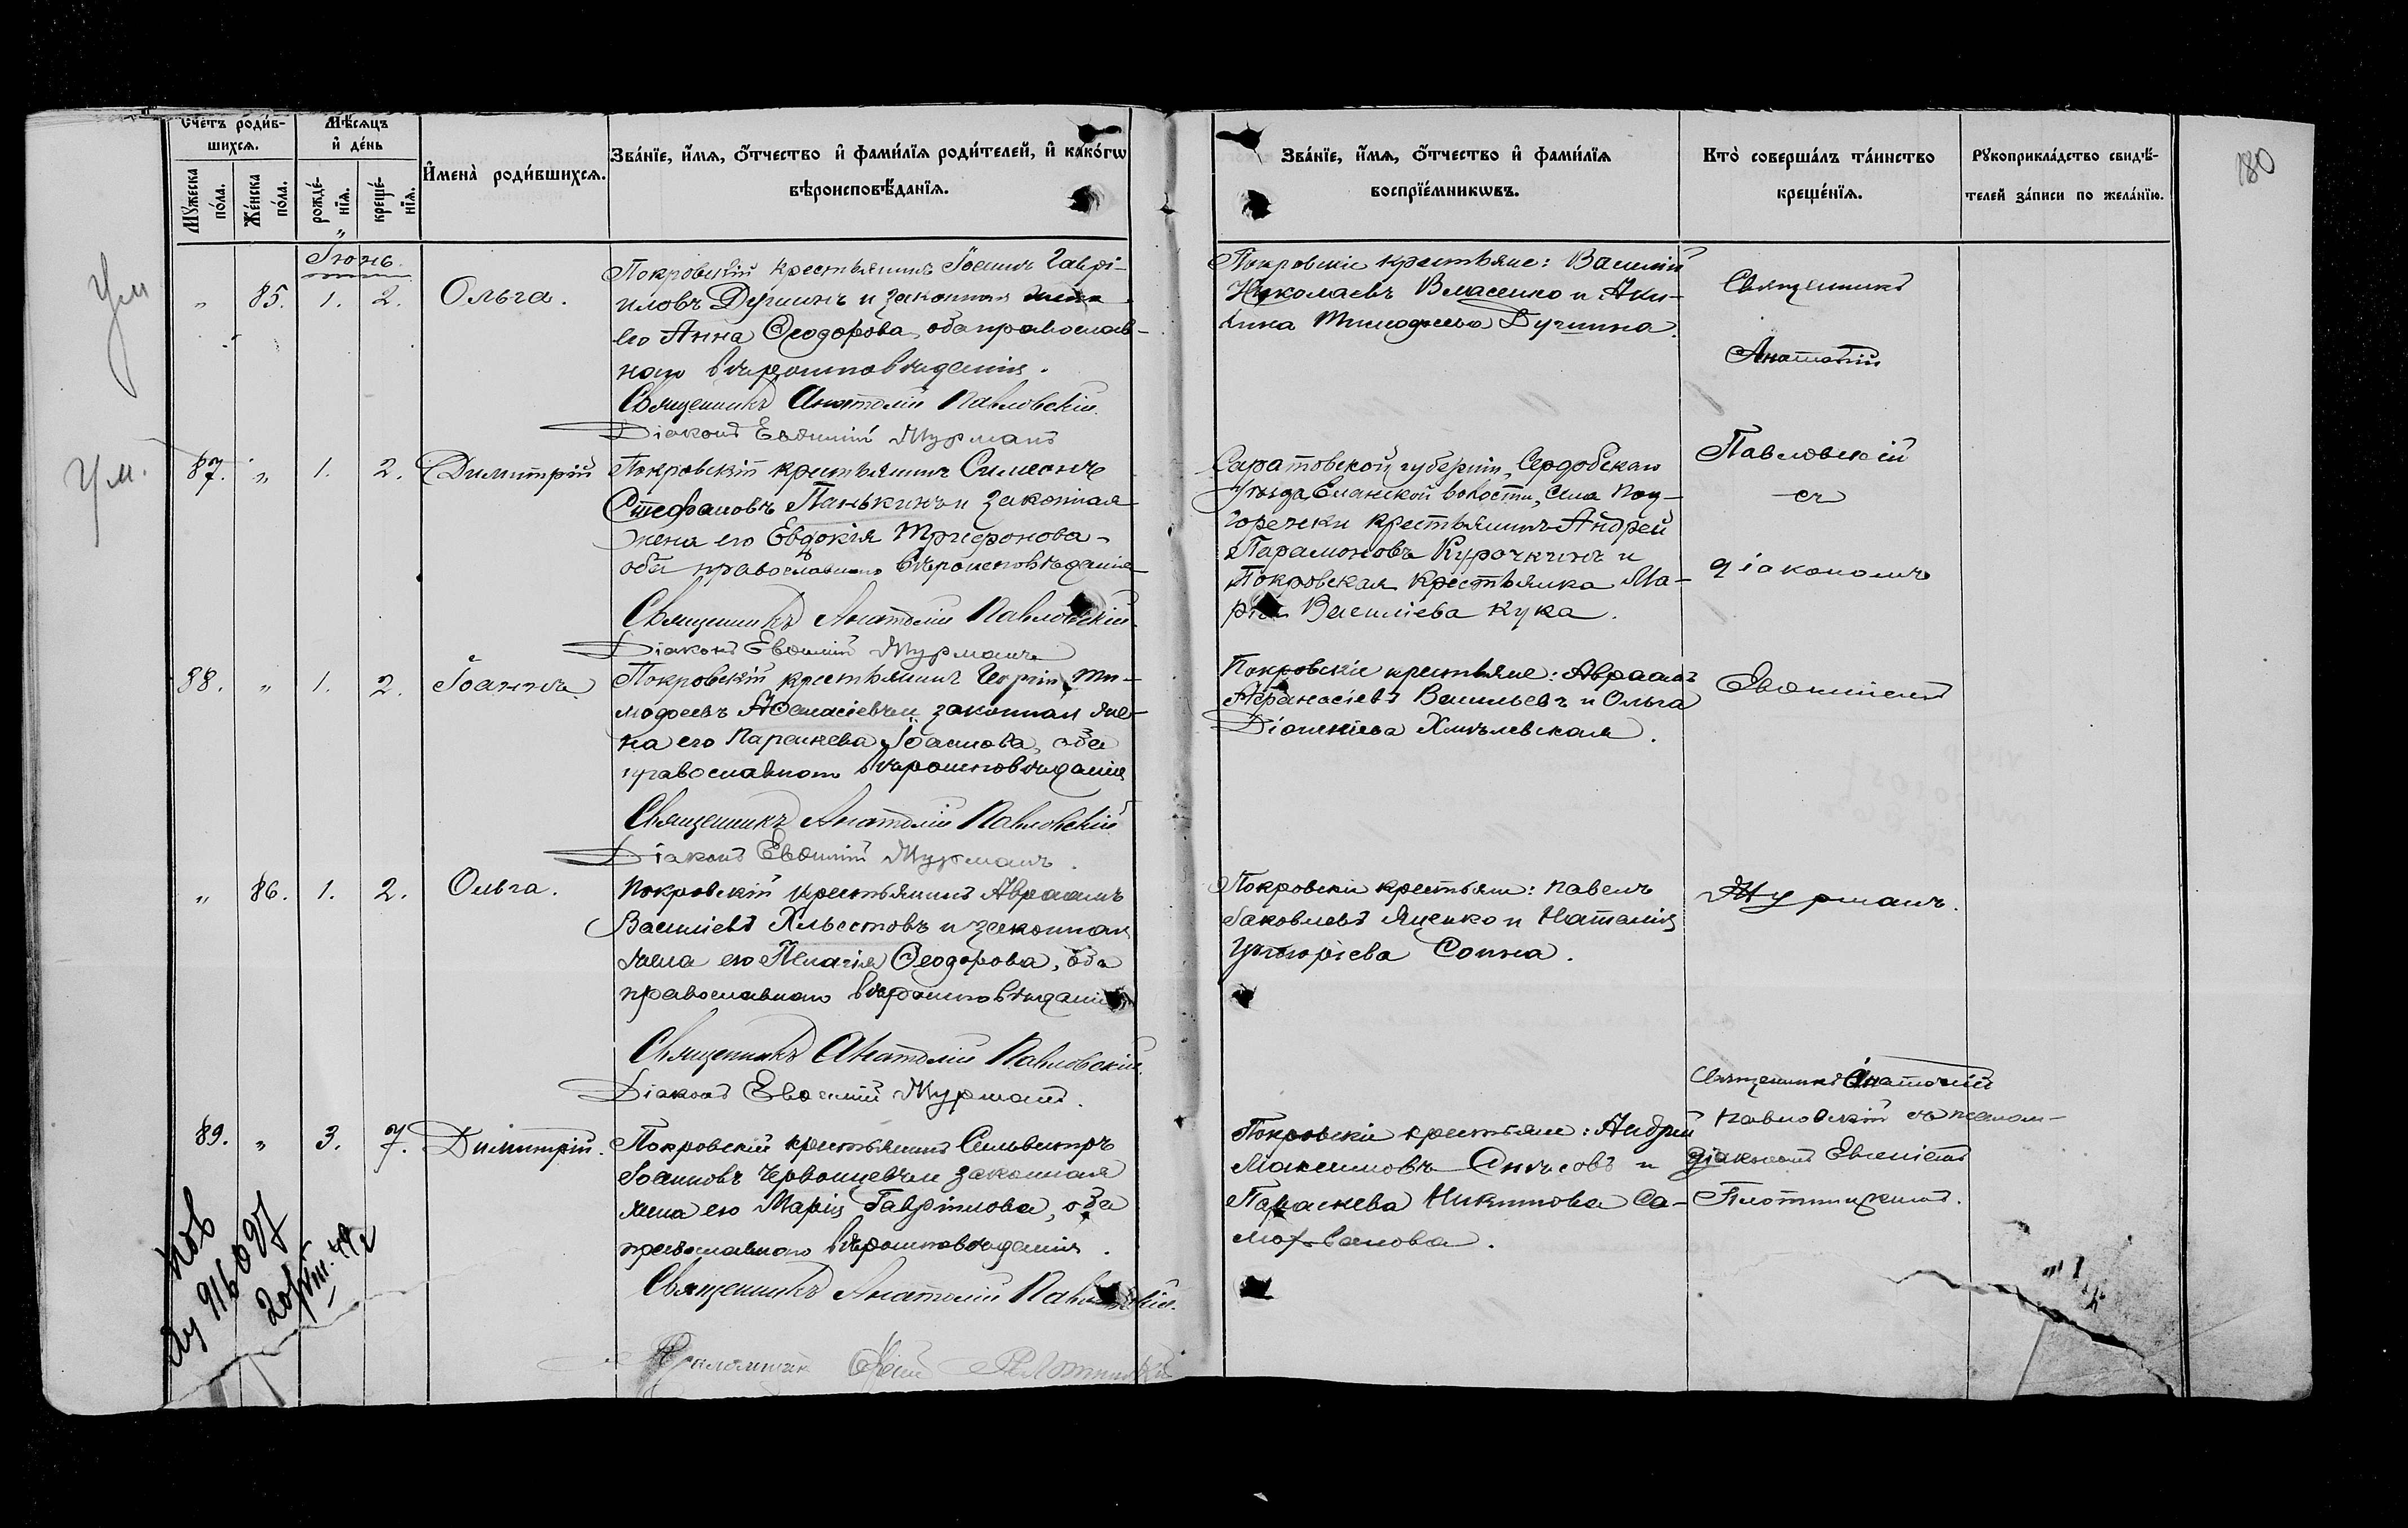 Счетъ родив-
шихся.
Мѣсяцъ
и день
Мужеска пола.
Женска пола.
рожде-
нія.
креще-
нія.
Имена родившихся.
Званіе, имя, отчество и фамилія родителей, и какого
вѣроисповѣданія.
Званіе, имя, отчество и фамилія
воспріемниковъ.
Кто совершалъ таинство
крещенія.
Рукоприкладство свидѣ-
телей записи по желанію.
180
Ум
Іюнь.
„ 85. 1. 2. Ольга.
Покровскій крестьянинъ Іоаннъ Гаврі-
иловъ Дугинъ и законная жена
его Анна Ѳеодорова, оба православ-
наго вѣроисповѣданія.
Священникъ Анатолій Павловскій.
Діаконъ Евѳимій Журманъ
Покровскіе крестьяне: Василій
Николаевъ Власенко и Аки-
лина Тимоѳеева Дугина.
Священникъ
Анатолій
Павловскій
съ
діакономъ
Евѳиміемъ
Журманъ.
Ум.
87. „ 1. 2. Димитрій
Покровскій крестьянинъ Симеонъ
Стефановъ Панькинъ и законная
жена его Евдокія Трифонова
оба православнаго вѣроисповѣданія
Священникъ Анатолій Павловскій.
Діаконъ Евѳимій Журманъ
Саратовской губерніи, Сердобскаго
уѣзда, Еланской волости, села Под-
горенки крестьянинъ Андрей
Парамоновъ Курочкинъ и
Покровская крестьянка Ма-
рія Василіева Кука.
88. „ 1. 2. Іоаннъ
Покровскій крестьянинъ Георгій Ти-
моѳеевъ Аѳанасіевъ и законная же-
на его Параскева Іоаннова, оба
православнаго вѣроисповѣданія
Священникъ Анатолій Павловскій
Діаконъ Евѳимій Журманъ.
Покровскіе крестьяне: Авраамъ
Аѳанасіевъ Васильевъ и Ольга
Діонисіева Хмѣлевская.
„ 86. 1. 2. Ольга.
Покровскій крестьянинъ Авраамъ
Василіевъ Хлыстовъ и законная
жена его Пелагія Ѳеодорова, оба
православнаго вѣроисповѣданія
Священникъ Анатолій Павловскій.
Діаконъ Евѳимій Журманъ.
Покровскіе крестьяне: Павелъ
Іаковлевъ Яценко и Наталія
Григоріева Сопина.
89. „ 3. 7. Димитрій.
Покровскій крестьянинъ Сильвестръ
Іоанновъ Червонцевъ и законная
жена его Марія Гавріилова, оба
православнаго вѣроисповѣданія.
Священникъ Анатолій Павловскій.
Псаломщик Плотницкій
Покровскіе крестьяне: Андрей
Максимовъ и
Параскева Никитова Са-
мохвалова.
Священникъ Анатолій
Павловскій съ псалом-
Плотницкимъ.
916097